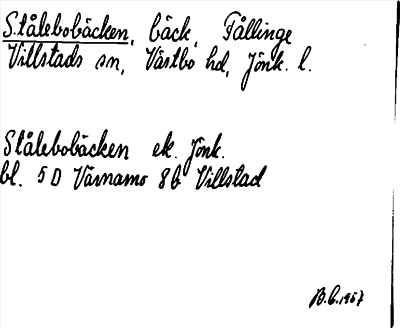 Stålebobäcken, bäck, Fållinge
Villstads sn, Västbo hd, Jönk. l.
Stålebobäcken ek. Jönk.
bl. 5 D Värnamo 8b Villstad
B.C. 1957